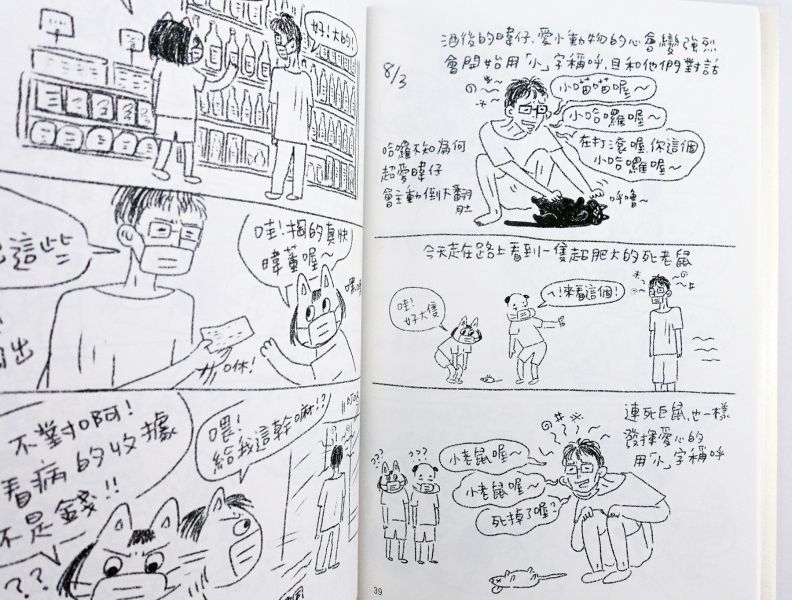 好!大的!
這些
哇!掏的真快
暐董喔~
咻!
出
不對啊!
看病的收據
不是錢!!
??
喂!
給我這幹嘛!?
酒後的暐仔,愛小動物的心會變強烈
會開始用「小」字稱呼,且和他們對話
8/3
小喵喵喔~
小哈囉喔~
在打滾喔,你這個
小哈囉喔~
哈囉不知為何
超愛暐仔
會主動倒大翻
肚
呼嚕~
今天走在路上看到一隻超肥大的死老鼠
哇!
好大隻
ㄟ!來看這個!
連死巨鼠,也一樣
發揮愛心的
用「小」字稱呼
???
???
小老鼠喔~
小老鼠喔~
死掉了喔?
39